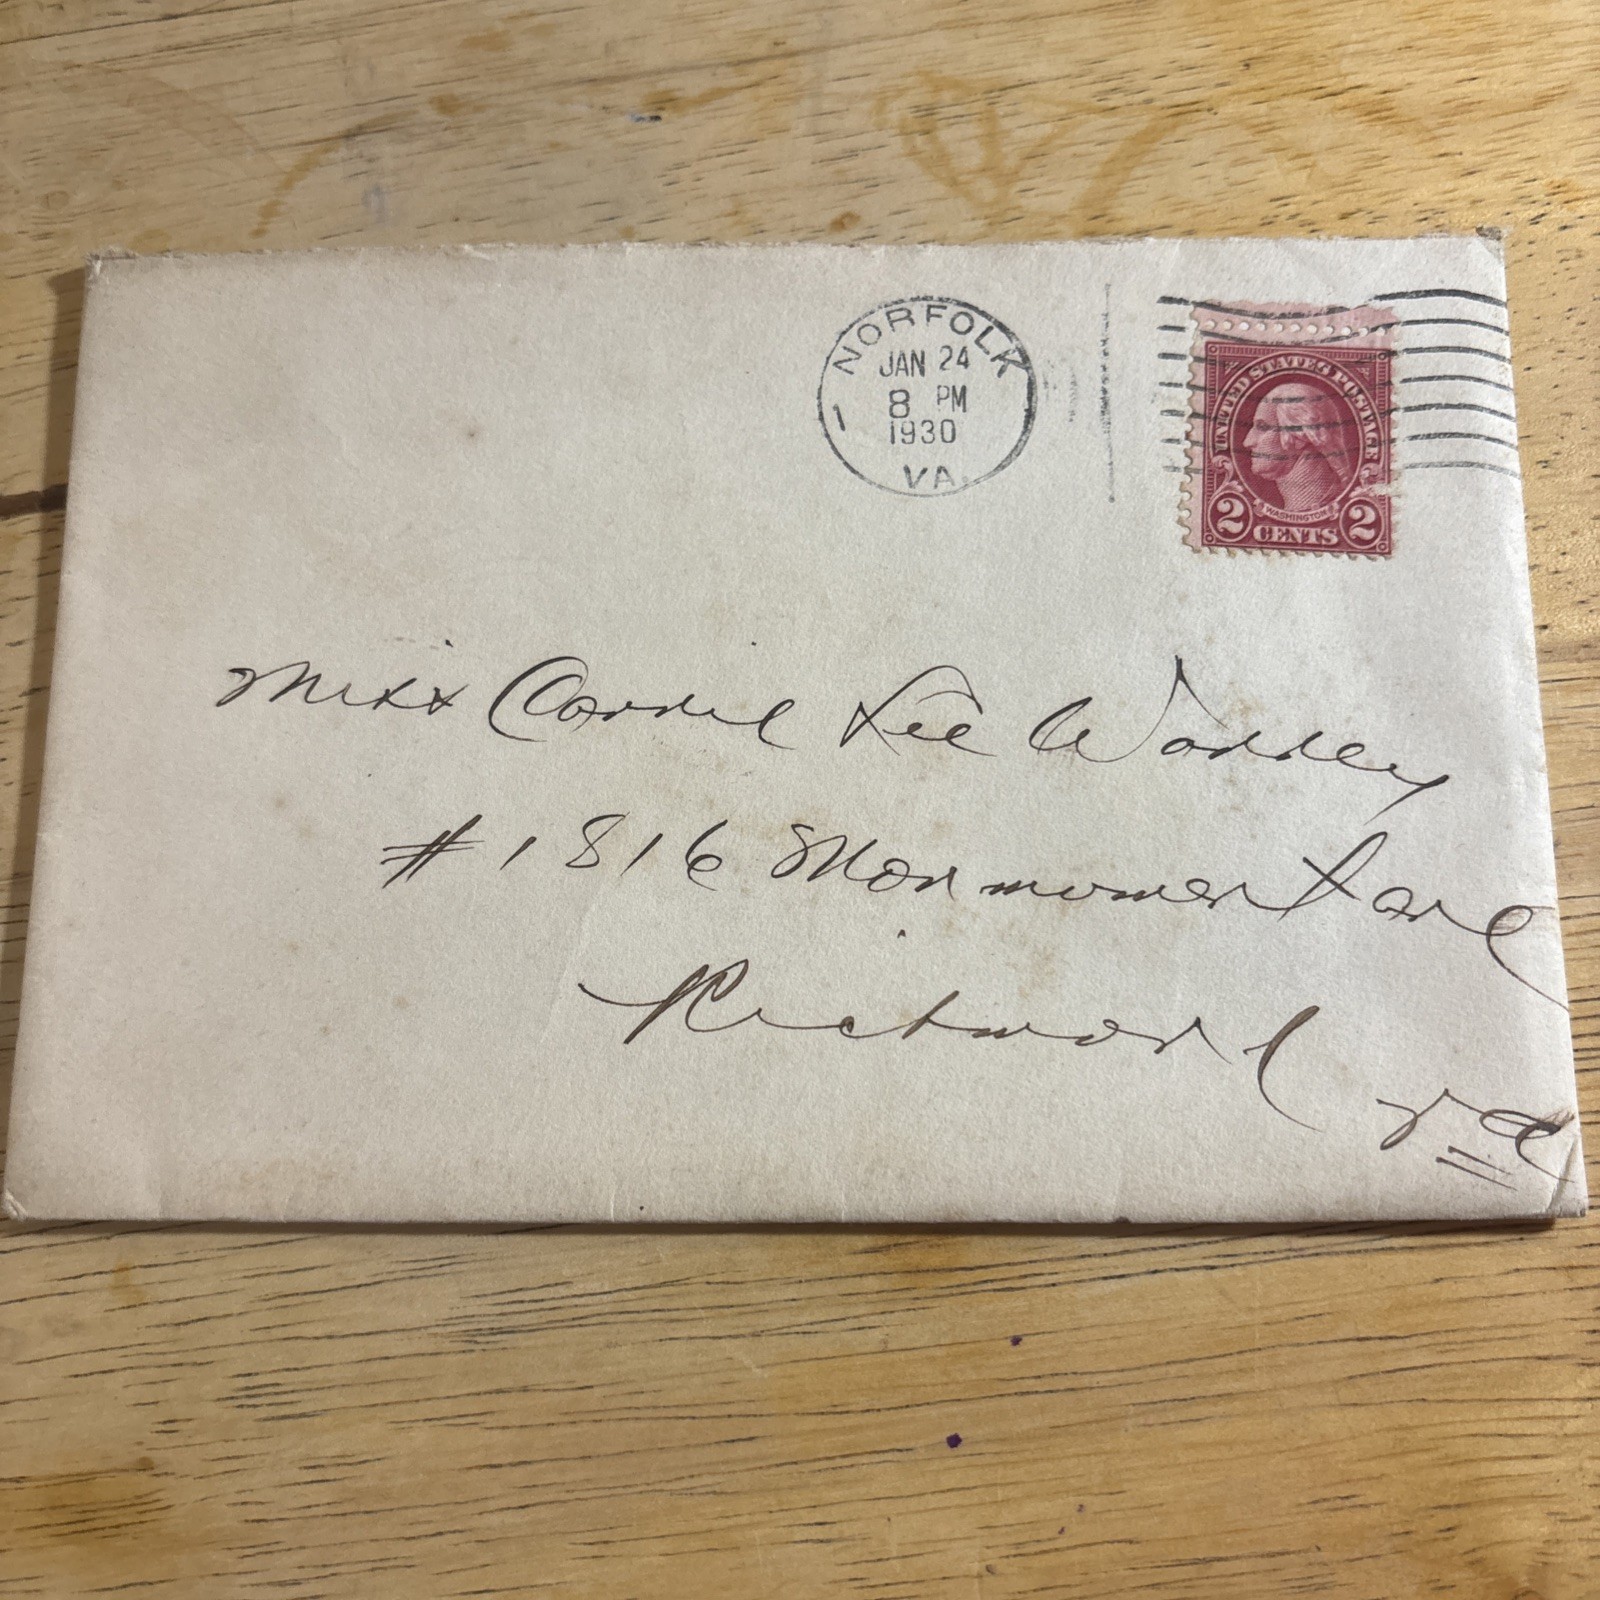 NORFOLK
JAN 24
8 PM
1930
VA.
1
UNITED STATES POSTAGE
WASHINGTON
2 CENTS 2
Miss Carrie Lee
#1816 Monument ave
Richmond
Va